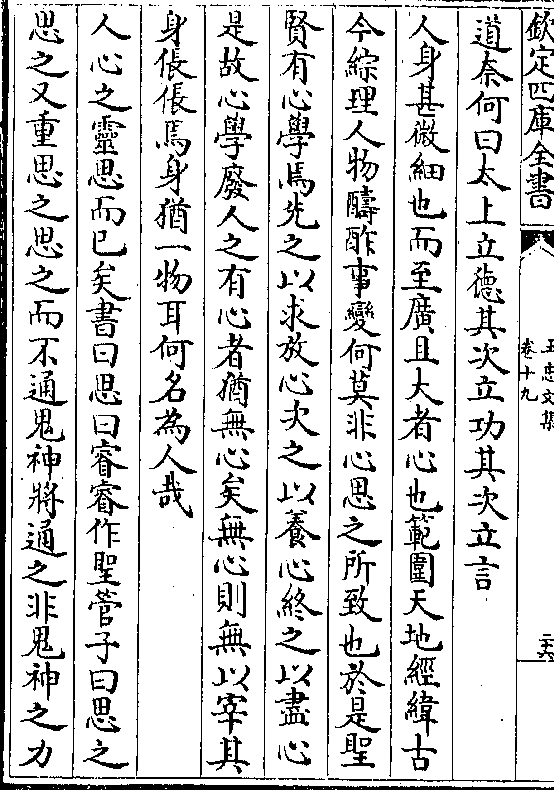 欽定四庫全書
王忠文集
卷十九
二六
道奈何曰太上立德其次立功其次立言
人身甚微細也而至廣且大者心也範圍天地經緯古
今綜理人物酬酢事變何莫非心思之所致也於是聖
賢有心學焉先之以求放心次之以養心終之以盡心
是故心學廢人之有心者猶無心矣無心則無以宰其
身倀倀焉身猶一物耳何名為人哉
人心之靈思而已矣書曰思曰睿睿作聖管子曰思之
思之又重思之思之而不通鬼神將通之非鬼神之力